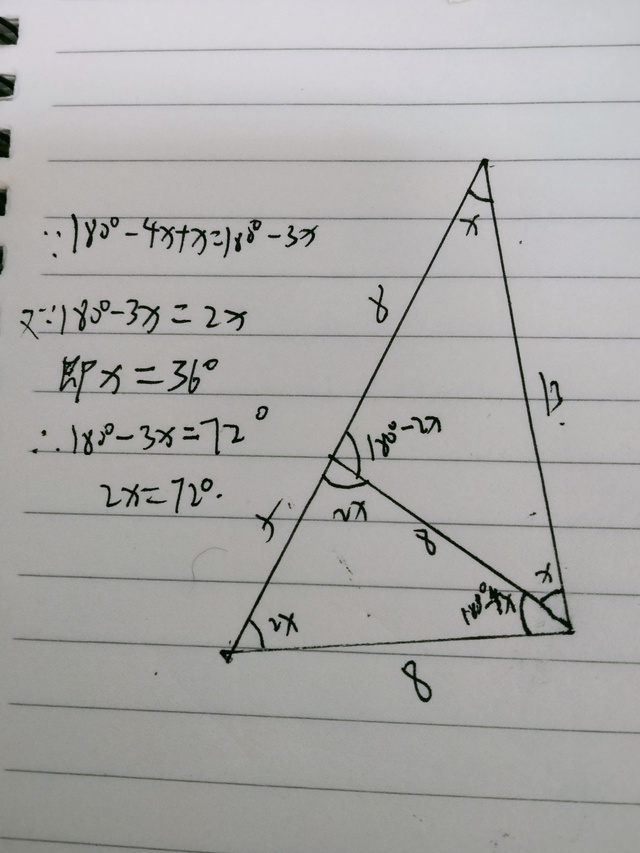 ∵180°-4x+x=180°-3x
又∵180°-3x=2x
即x=36°
∴180°-3x=72°
2x=72°.
x
8
13
180°-2x
2x
x
8
x
180°-4x
2x
8